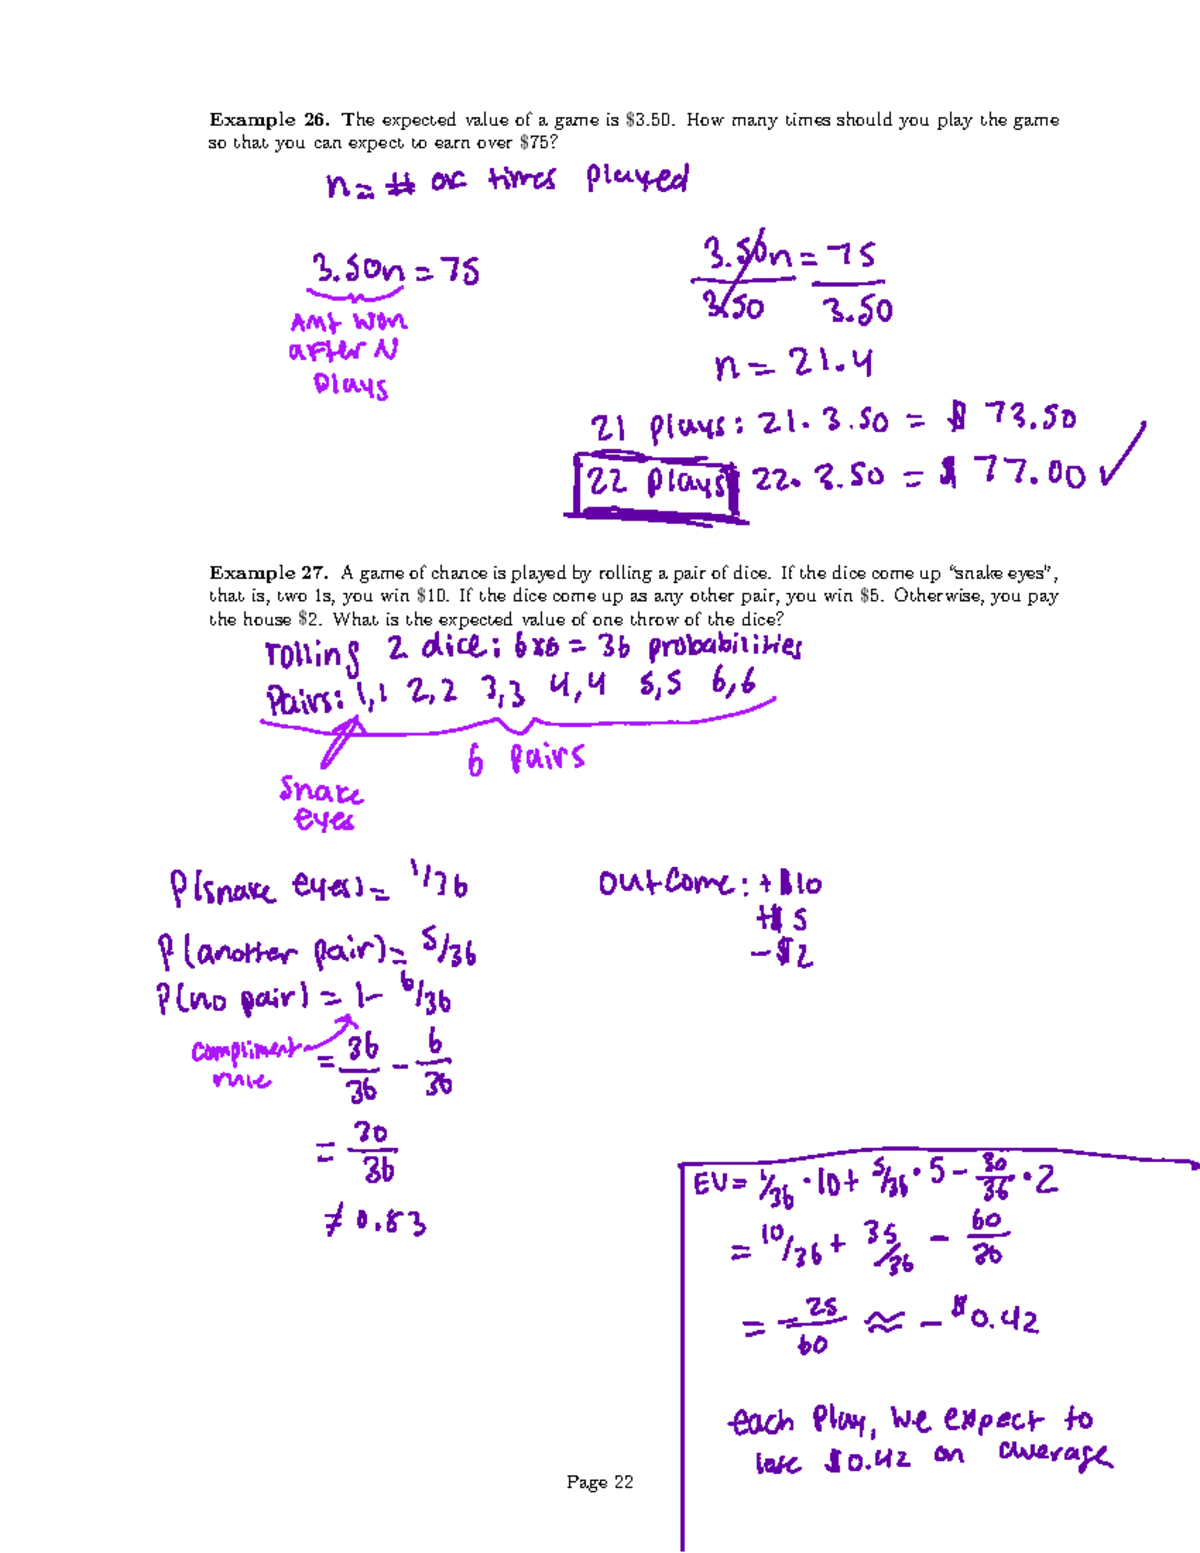 Example 26. The expected value of a game is $3.50. How many times should you play the game
so that you can expect to earn over $75?
n = # of times played
3.50n = 75
Amt won
after N
plays
3.50n = 75
3.50 3.50
n = 21.4
21 plays: 21 · 3.50 = $ 73.50
22 plays 22 · 3.50 = $ 77.00 ✓
Example 27. A game of chance is played by rolling a pair of dice. If the dice come up "snake eyes",
that is, two 1s, you win $10. If the dice come up as any other pair, you win $5. Otherwise, you pay
the house $2. What is the expected value of one throw of the dice?
rolling 2 dice: 6x6 = 36 probabilities
Pairs: 1,1 2,2 3,3 4,4 5,5 6,6
6 pairs
Snake
eyes
P(snake eyes) = 1/36
P(another pair) = 5/36
P(no pair) = 1 - 6/36
compliment
rule
= 36/36 - 6/36
= 30/36
≠ 0.83
outcome: +$10
+$5
-$2
EV = 1/36 · 10 + 5/36 · 5 - 30/36 · 2
= 10/36 + 35/36 - 60/30
= -25/60 ≈ -$0.42
each play, we expect to
lose $0.42 on average
Page 22